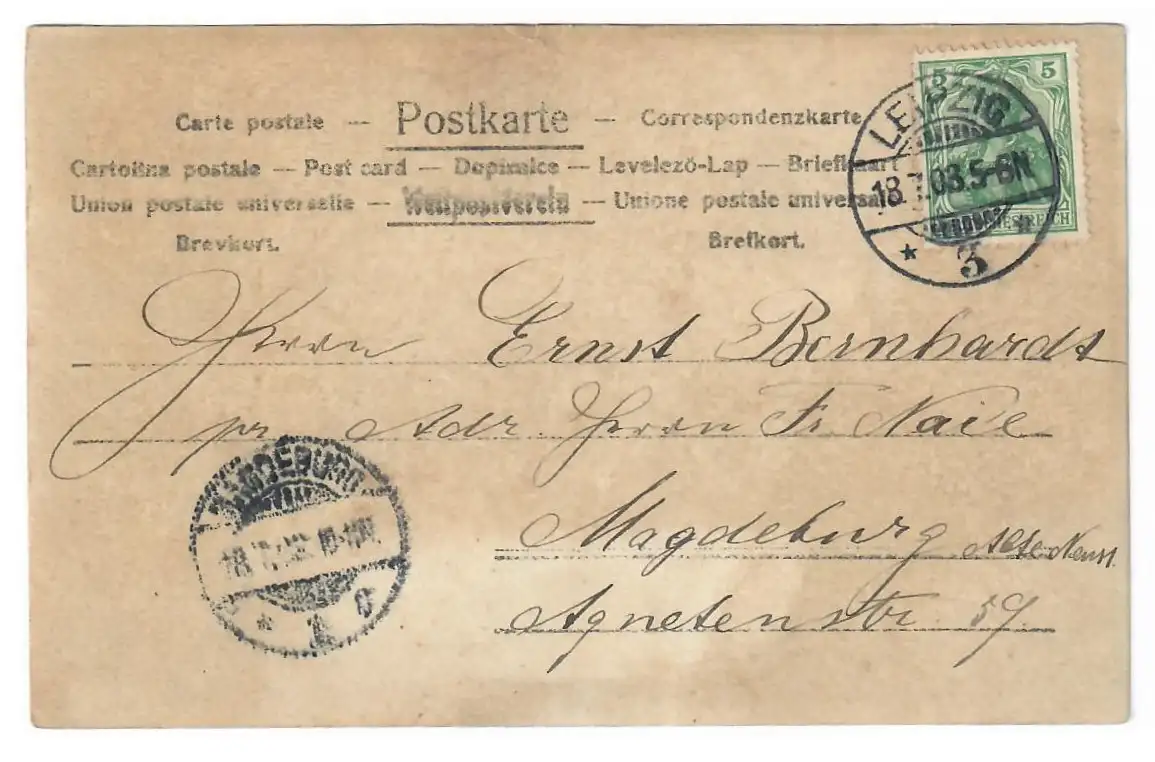 Carte postale — Postkarte — Correspondenzkarte
Cartolina postale — Post card — Dopisnice — Levelező-Lap — Briefkaart
Union postale universelle — Weltpostverein — Unione postale universale
Brevkort. Brefkort.
5
LEIPZIG
18. 03. 5-6N
* 3 *
Herrn Ernst Bernhardt
pr. Adr. Herrn Fr. Naie
MAGDEBURG
18
* 1
Magdeburg Alte Neust.
Agnetenstr. 59.